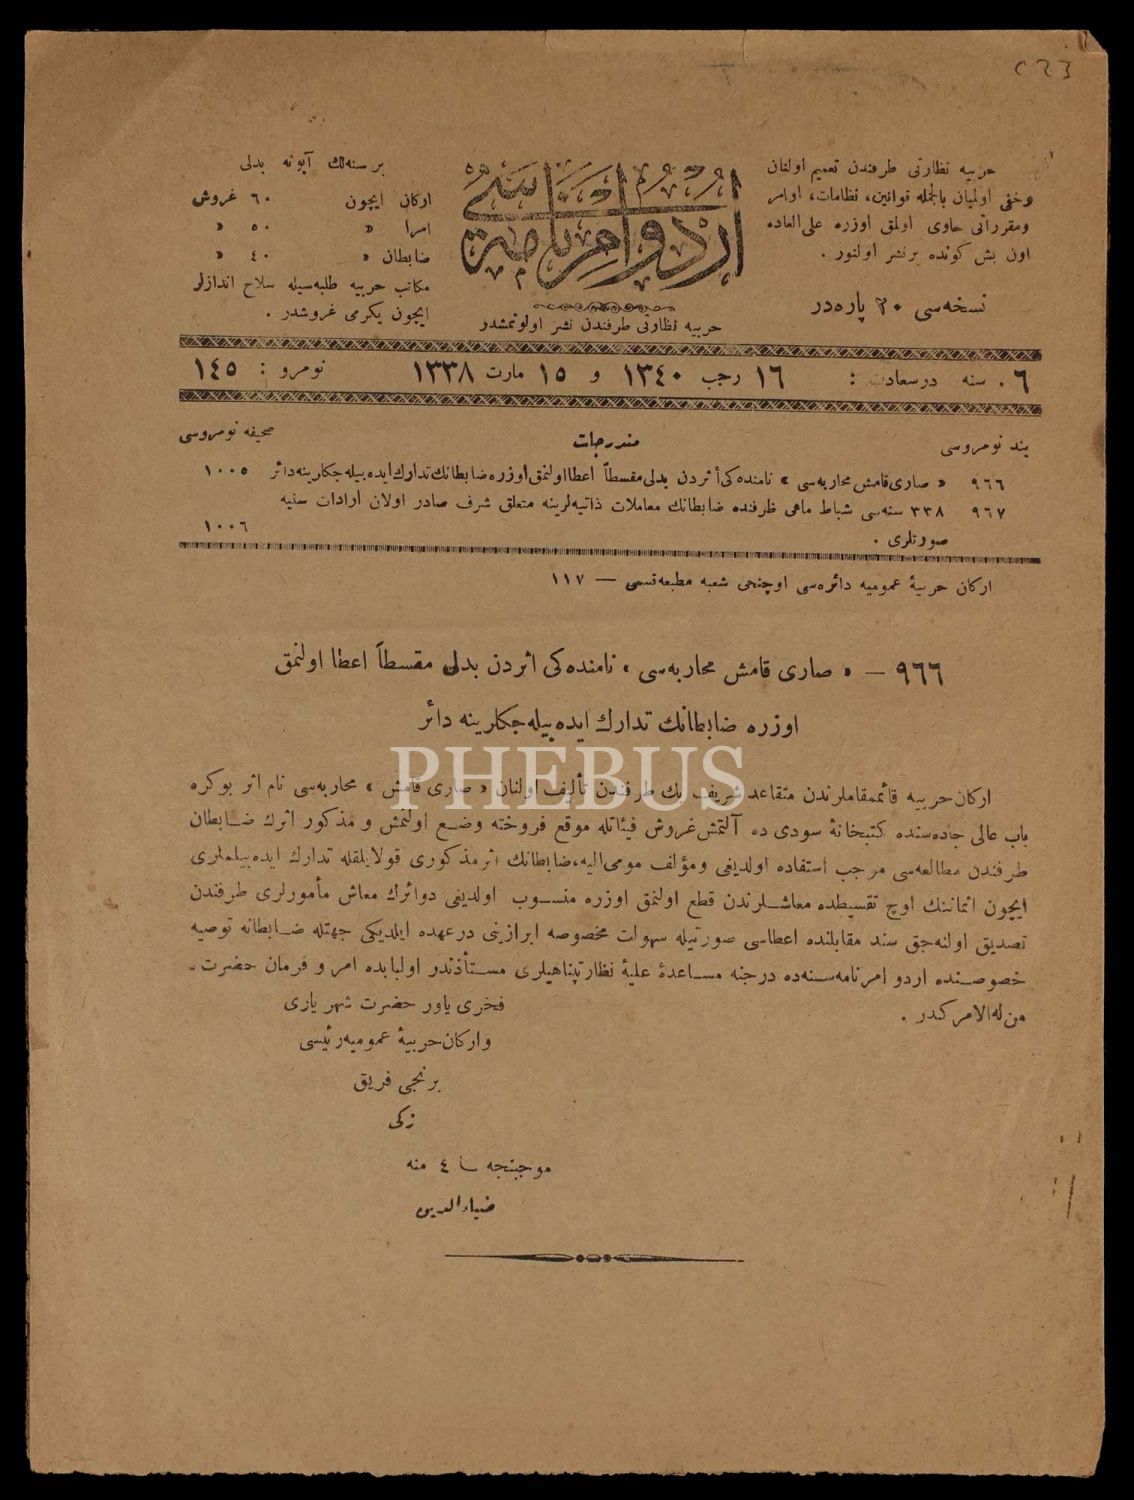 حربیه نظارتی طرفندن تعمیم اولنان
وخفی اولمیان بالجمله قوانین، نظامات، اوامر
ومقرراتی حاوی اولمق اوزره علی‌العاده
اون بش کونده بر نشر اولنور .
نسخه‌سی ۲۰ پاره‌در
اردو امرنامه‌سی
حربیه نظارتی طرفندن نشر اولونمشدر
بر سنه‌لك آبونه بدلی
ارکان ایچون ٦۰ غروش
امرا » ٥۰ »
ضابطان » ٤۰ »
مکاتب حربیه طلبه‌سیله سلاح اندازلر
ایچون یکرمی غروشدر .
٦ . سنه درسعادت : ١٦ رجب ١٣٤٠ و ١٥ مارت ١٣٣٨ نومرو : ١٤٥
بند نومروسی مندرجات صحیفه نومروسی
٩٦٦ « صاری قامش محاربه‌سی » نامنده‌کی أثردن بدلی مقسطاً اعطا اولنمق اوزره ضابطانك تدارك ایده‌بیله‌جکلرینه دائر ١٠٠٥
٩٦٧ ٣٣٨ سنه‌سی شباط ماهی ظرفنده ضابطانك معاملات ذاتیه‌لرینه متعلق شرف صادر اولان ارادات سنیه
صورتلری . ١٠٠٦
ارکان حربیهٔ عمومیه دائره‌سی اوچنجی شعبه مطبعه قسمی — ١١٧
٩٦٦ — « صاری قامش محاربه‌سی » نامنده‌کی اثردن بدلی مقسطاً اعطا اولنمق
اوزره ضابطانك تدارك ایده بیله‌جکلرینه دائر
PHEBUS
ارکان حربیه قائممقاملرندن متقاعد شریف بك طرفندن تألیف اولنان « صاری قامش » محاربه‌سی نام اثر بوکره
باب عالی جاده‌سنده کتبخانهٔ سودی ده آلتمش غروش فیئاتله موقع فروخته وضع اولنمش و مذکور اثرك ضابطان
طرفندن مطالعه‌سی موجب استفاده اولدیغی ومؤلف مومی‌الیه، ضابطانك اثر مذکوری قولایلقله تدارك ایده‌بیلملری
ایچون اثماننك اوچ تقسیطده معاشلرندن قطع اولنمق اوزره منسوب اولدیغی دوائرك معاش مأمورلری طرفندن
تصدیق اولنه‌جق سند مقابلنده اعطاسی صورتیله سهولت مخصوصه ابرازینی درعهده ایلدیکی جهتله ضابطانه توصیه
خصوصنده اردو امرنامه‌سنه‌ده درجنه مساعدهٔ علیهٔ نظارتپناهیلری مستأذندر اولبابده امر و فرمان حضرت
من له‌الامرکدر .
فخری یاور حضرت شهریاری
و ارکان حربیهٔ عمومیه رئیسی
برنجی فریق
زکی
موجبنجه ٤ منه
ضیاءالدین